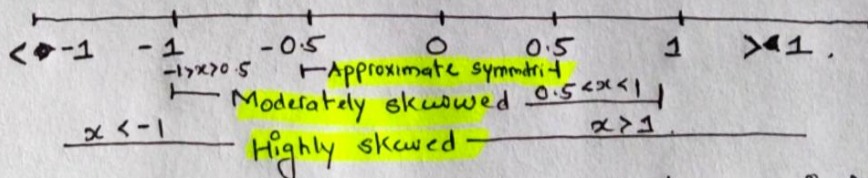 < -1 -1 -0.5 0 0.5 1 > 1.
-1>x>0.5 Approximate symmtrit
Moderately skuowed 0.5<x<1
x < -1 Highly skewed x>1